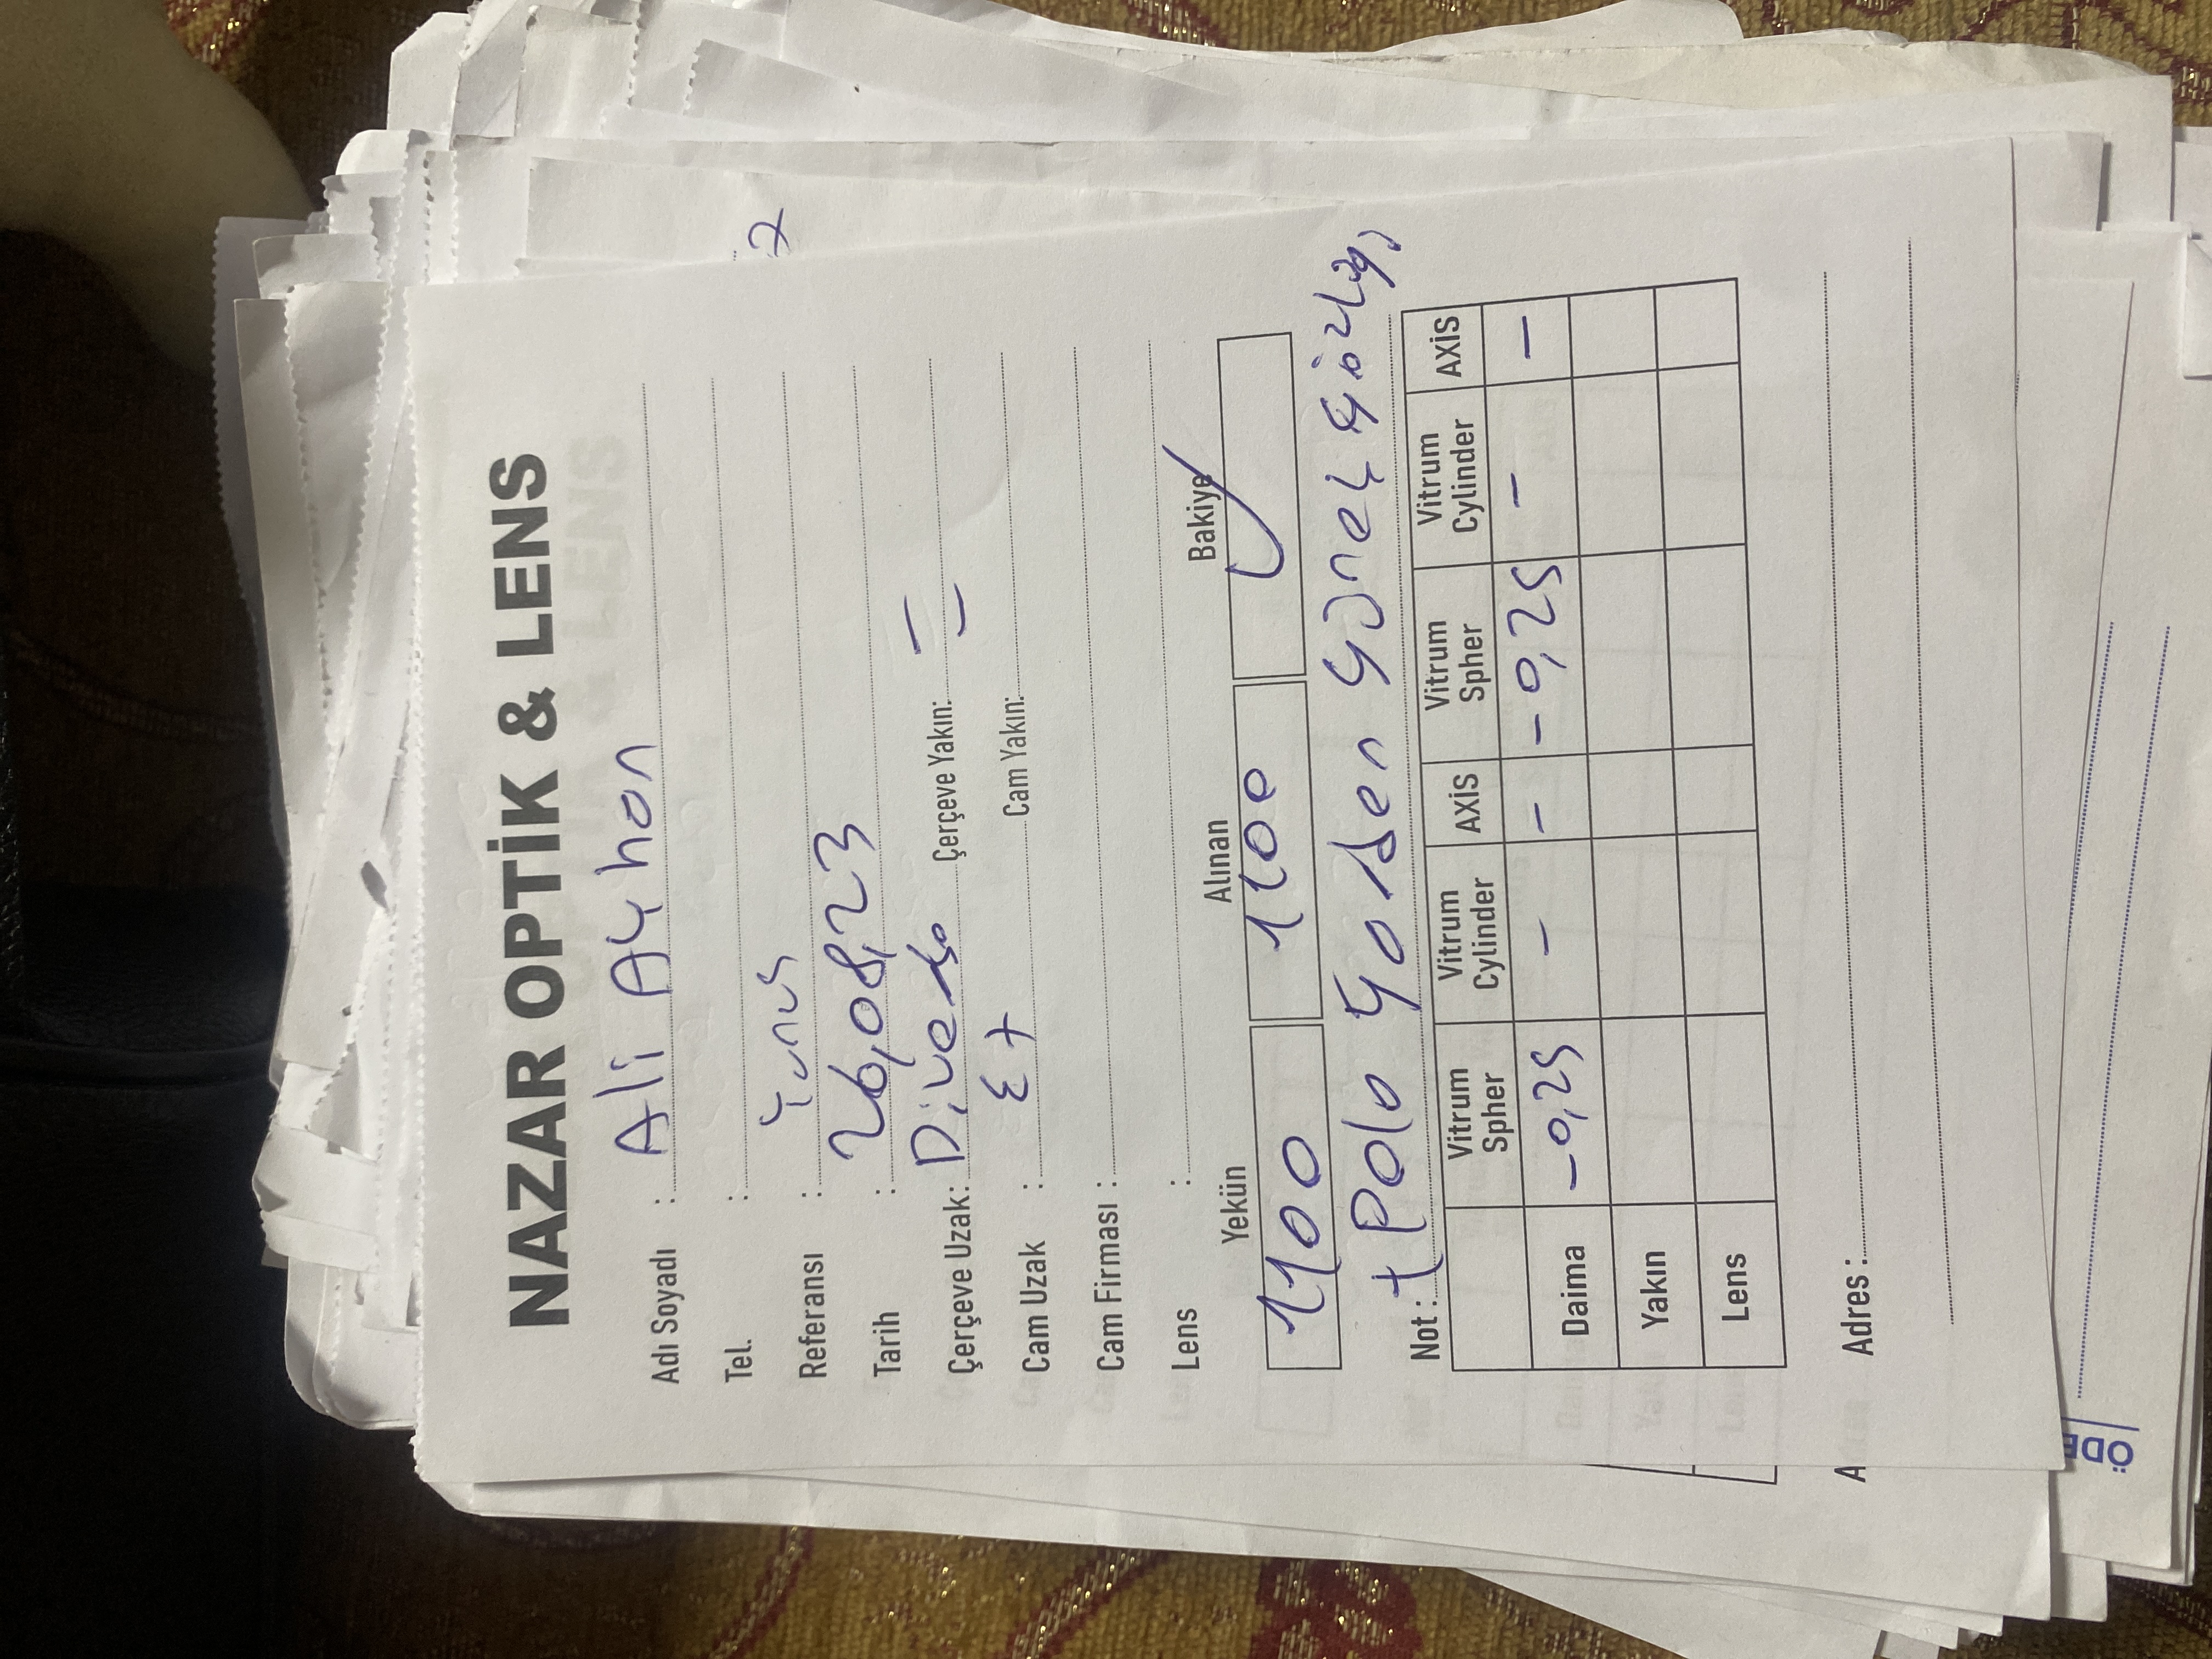 NAZAR OPTİK & LENS
Adı Soyadı : Ali Ayhan
Tel. :
Referansı : Yunus
Tarih : 26,08,23
Çerçeve Uzak: Diverso Çerçeve Yakın: =
Cam Uzak : Çerçeve Yakın:
Cam Firması :
Lens :
Yekün Alınan Bakiye
1100 1100 ✓
Not : + Polo Garden Güneş Gözlüğü
Vitrum Spher Vitrum Cylinder AXİS Vitrum Spher Vitrum Cylinder AXİS
Daima -0,25 - - -0,25 - -
Yakın
Lens
Adres :
A
ÖDE